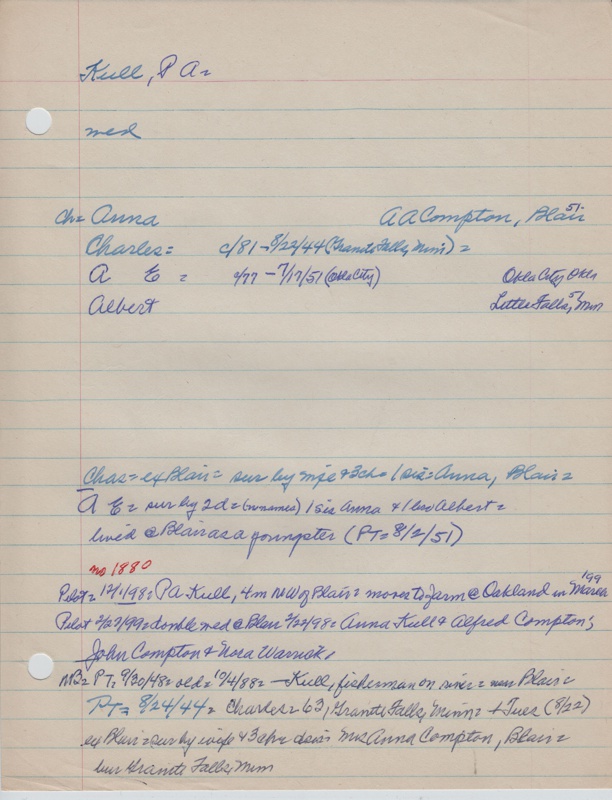 Kull, P A =
med
ch= Anna A A Compton, Blair 51
Charles = c/81 - 8/22/44 (Granite Falls, Minn) =
A E = c/77 - 7/17/51 (Okla City) Okla City, Okla
Albert Little Falls, Minn 51
Chas = ex Blair = sur by wife & 3 ch = 1 sis = Anna, Blair =
A E = sur by 2d = (no names) 1 sis Anna & 1 bro Albert =
lived @ Blair as a youngster (PT = 8/2/51)
no 1880
Pilot = 12/1/98 = P A Kull, 4 m NW of Blair = moves to farm @ Oakland in March '99
Pilot 2/27/99 = double wed @ Blair 2/22/98 = Anna Kull & Alfred Compton;
John Compton & Nora Warrick,
NB = PT = 9/30/48 = old = 10/4/88 = — Kull, fisherman on river = near Blair =
PT = 8/24/44 = Charles = 63, Granite Falls, Minn = + Tues (8/22)
ex Blair = sur by wife & 3 ch = sis = Mrs Anna Compton, Blair =
bur Granite Falls, Minn